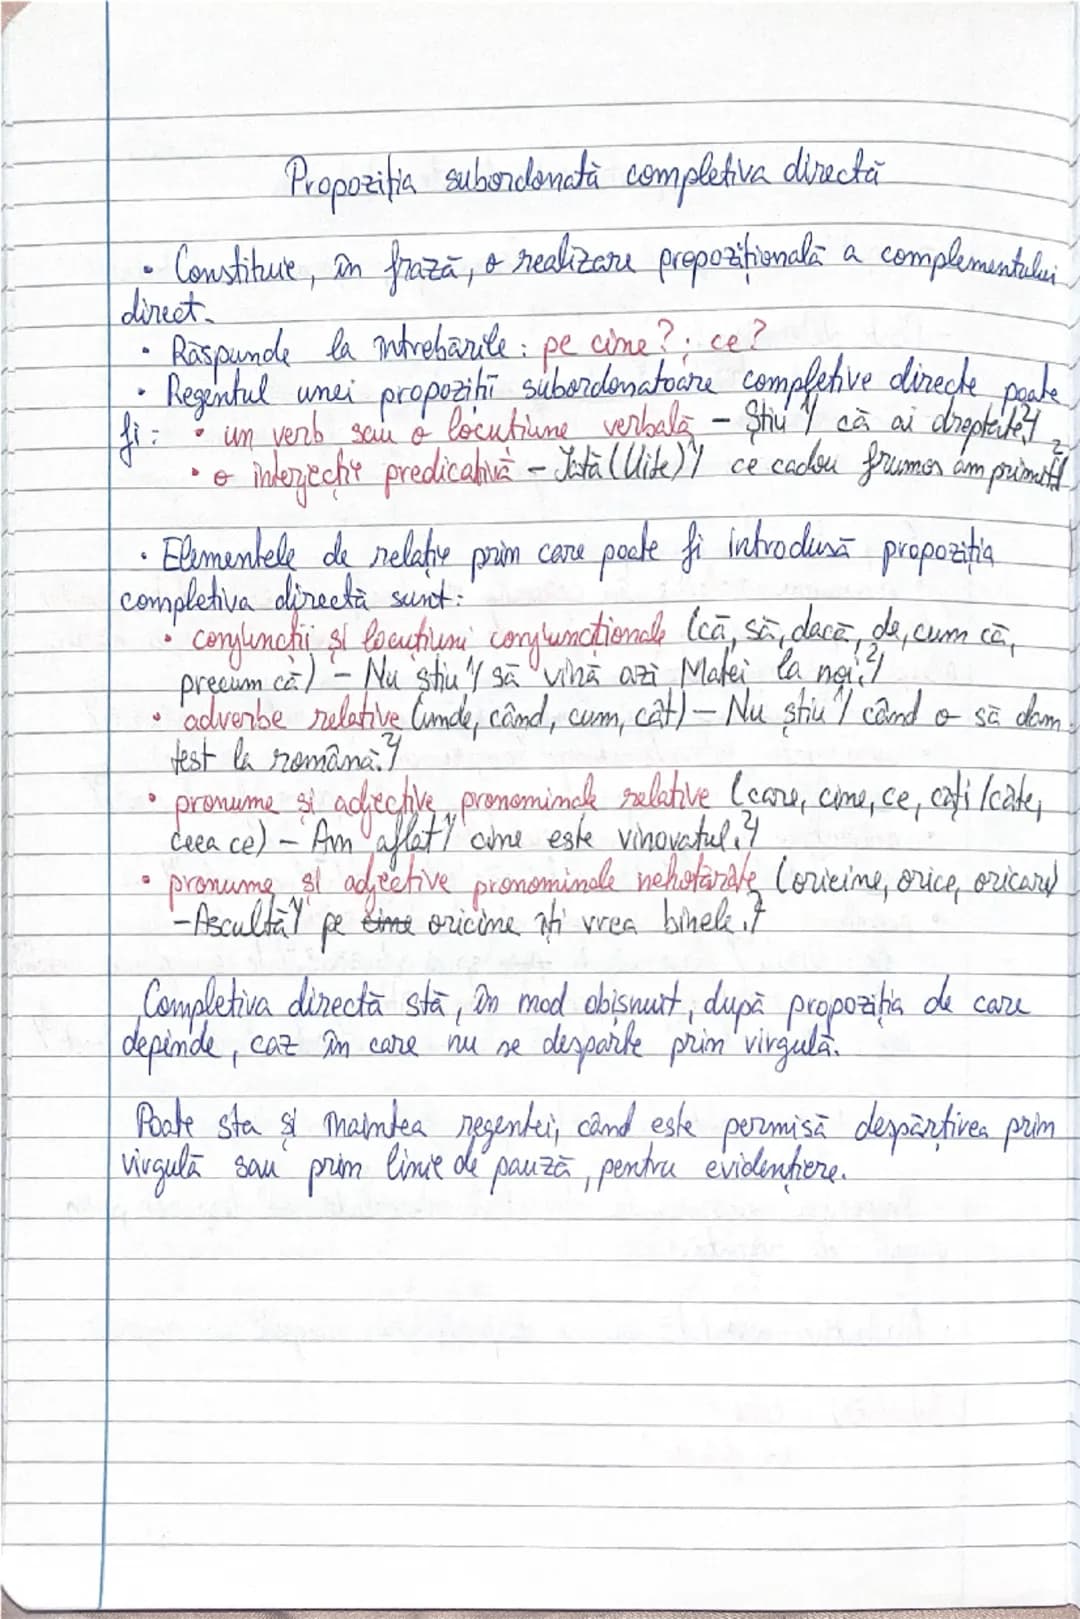 Propoziția subordonată completiva directă
• Constituie, în frază, o realizare propozițională a complementului
direct.
• Răspunde la întrebările: pe cine?; ce?
• Regentul unei propoziții subordonatoare completive directe poate
fi: • un verb sau o locuțiune verbală – Știu 1/ că ai dreptate.2/
• o interjecție predicativă – Iată (Uite) 1/ ce cadou frumos am primit! 2/
• Elementele de relație prin care poate fi introdusă propoziția
completiva directă sunt:
• conjuncții și locuțiuni conjuncționale (că, să, dacă, de, cum că,
precum că) – Nu știu 1/ să vină azi Matei la noi. 2/
• adverbe relative (unde, când, cum, cât) – Nu știu 1/ când o să dam
test la română. 2/
• pronume și adjective pronominale relative (care, cine, ce, cați/câte,
ceea ce) – Am aflat 1/ cine este vinovatul. 2/
• pronume și adjective pronominale nehotărâte (oricine, orice, oricare)
– Ascultă 1/ pe cine oricine îți vrea binele. 2/
Completiva directă stă, în mod obișnuit, după propoziția de care
depinde, caz în care nu se desparte prin virgulă.
Poate sta și înaintea regentei, când este permisă despărțirea prin
virgulă sau prin linie de pauză, pentru evidențiere.